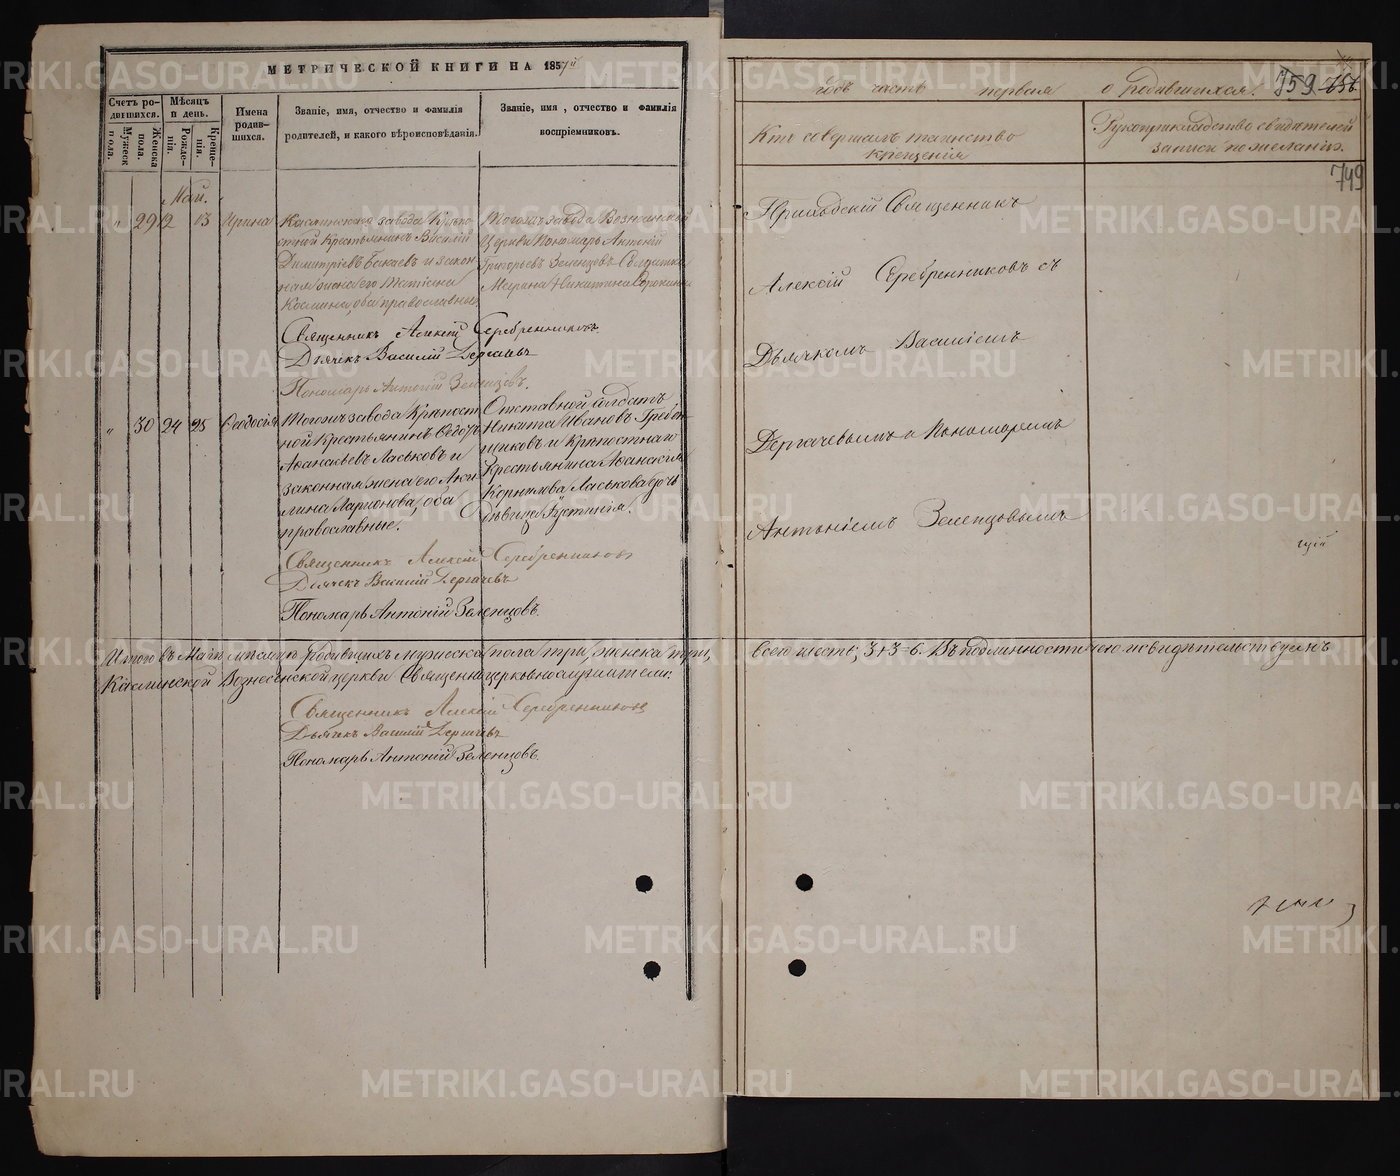 МЕТРИЧЕСКОЙ КНИГИ НА 185
Счетъ родившихся.
Мужеска пола.
Женска пола.
Мѣсяцъ и день.
Рожденія.
Крещенія.
Имена родившихся.
Званіе, имя, отчество и фамилія
родителей, и какого вѣроисповѣданія.
Званіе, имя, отчество и фамилія
воспріемниковъ.
Май.
" 29 12 13 Ирина
Каслинскаго завода Крѣпо-
стной Крестьянинъ Василій
Димитріевъ и закон-
ная жена его Татіана
Космина, оба православные.
Тогожъ завода Вознесенской
Церкви Пономарь Антоній
Григорьевъ Зеленцовъ
Никитина
Священникъ Алексій Серебренниковъ.
Дьячекъ Василій Дергачевъ
Пономарь Антоній Зеленцовъ.
" 30 24 25 Ѳеодосія
Тогожъ завода Крѣпост-
ной Крестьянинъ Ѳедотъ
Аѳанасьевъ Ласьковъ и
законная жена его Аки-
лина Ларионова, оба
православные.
Отставной солдатъ
Никита Ивановъ Гребен-
щиковъ и Крѣпостнаго
Крестьянина Аѳанасія
Корнилова Ласькова дочь
дѣвица Іустинія.
Священникъ Алексій Серебренниковъ
Дьячекъ Василій Дергачевъ
Пономарь Антоній Зеленцовъ.
Итого въ Маѣ мѣсяцѣ родившихъ мужеска пола три, женска три,
Каслинской Вознесенской церкви Священноцерковнослужители:
Священникъ Алексій Серебренниковъ
Дьячекъ Василій Дергачевъ
Пономарь Антоній Зеленцовъ.
годъ часть первая о родившихся.
759 756
Кто совершалъ таинство
крещенія
Рукоприкладство свидѣтелей
записи по желанію.
749
Приходскій Священникъ
Алексій Серебренниковъ съ
Дьячкомъ Василіемъ
Дергачевымъ и Пономаремъ
Антоніемъ Зеленцовымъ
всего шесть; 3+3=6. Въ подлинности чего и свидѣтельствуемъ
METRIKI.GASO-URAL.RU